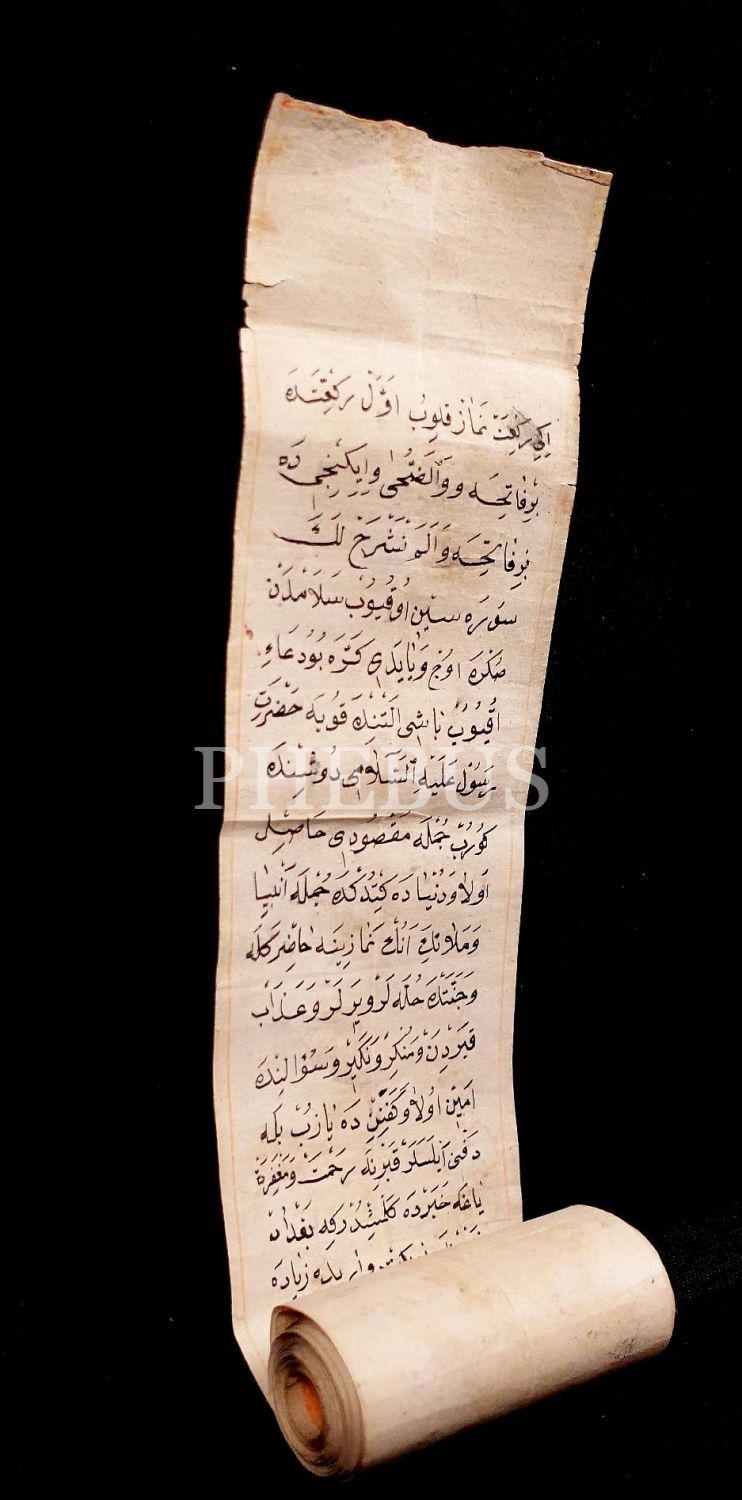 ایکی رکعت نماز قلوب اول رکعتده
بر فاتحه و والضحی و ایکنجی ده
بر فاتحه و الم نشرح لک
سوره سین اوقیوب سلامدن
صکره اوچ ویا یدی کره بو دعاء
اقیوب باشی التنده قویه حضرت
رسول علیه السلامی دوشنده
PHEBUS
کوروب جمله مقصودی حاصل
اولا و دنیاده کتدکده جمله انبیا
و ملائک انک نمازینه حاضر کله
و جنتدن حله لر ویرلر و عذاب
قبردن و منکر و نکیر و سؤالنده
امین اولا و کفنن ده یازوب بله
دفن ایلسلر قبرنه رحمت و مغفرة
یاغه خبرده کلمشدر که بغداد
زیاده